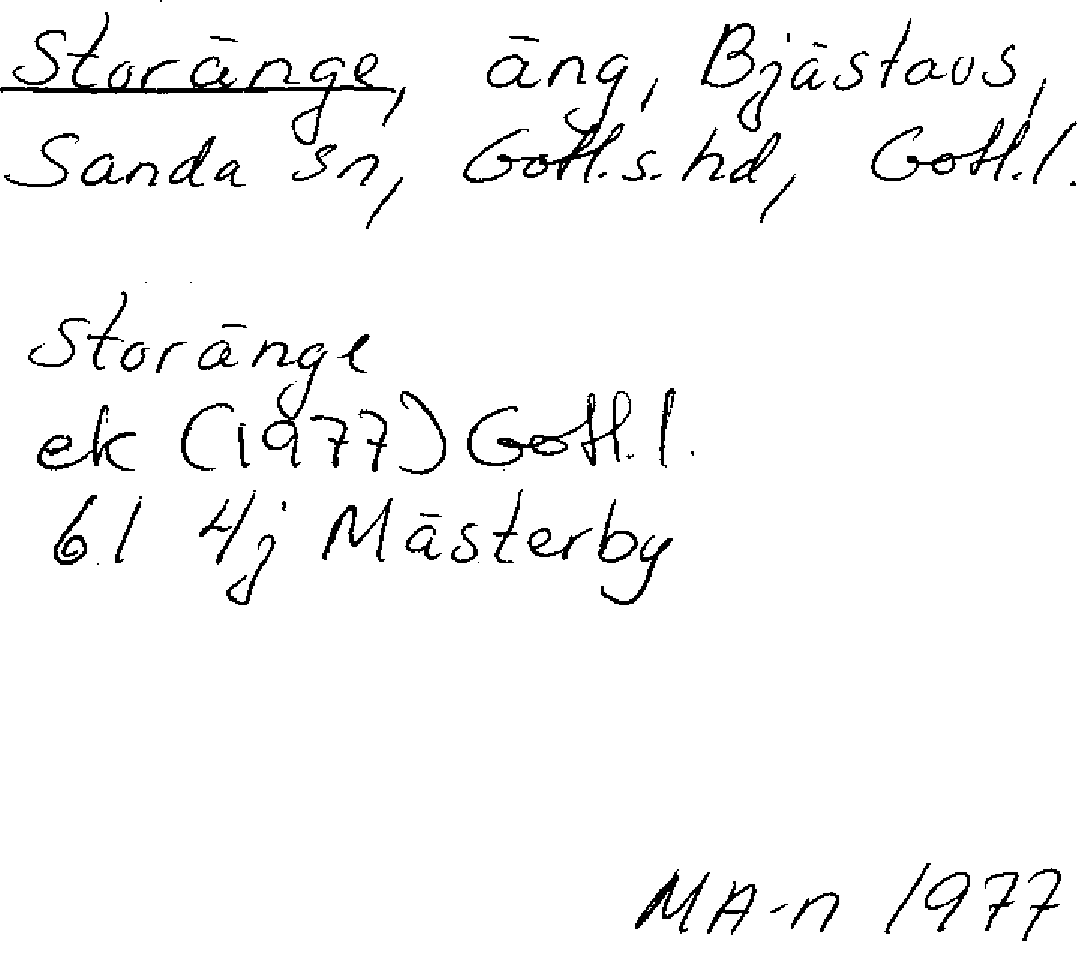 Storänge, äng, Bjästavs,
Sanda sn, Gotl.s. hd, Gotl.l.
Storänge
ek (1977) Gotl.l.
6I 4j Mästerby
MA-n 1977